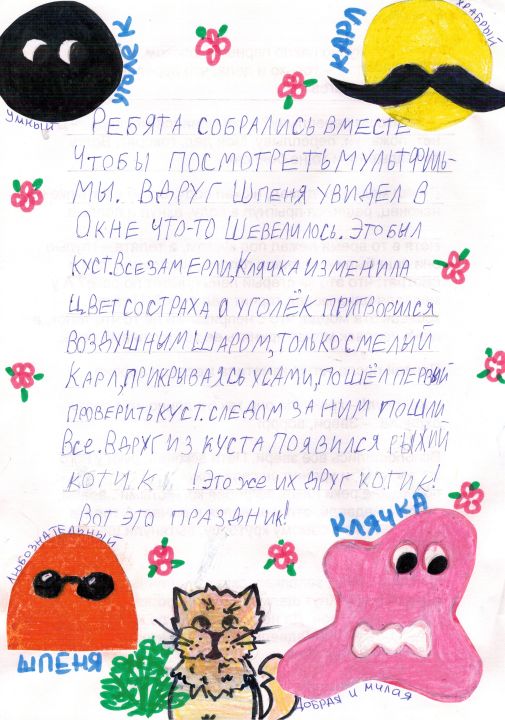 УГОЛЁК
УМНЫЙ
КАРЛ
ХРАБРЫЙ
РЕБЯТА СОБРАЛИСЬ ВМЕСТЕ
ЧТОБЫ ПОСМОТРЕТЬ МУЛЬТФИЛЬ-
МЫ. ВДРУГ ШПЕНЯ УВИДЕЛ В
ОКНЕ ЧТО-ТО ШЕВЕЛИЛОСЬ. ЭТО БЫЛ
КУСТ. ВСЕ ЗАМЕРЛИ, КЛЯЧКА ИЗМЕНИЛА
ЦВЕТ СО СТРАХА, А УГОЛЁК ПРИТВОРИЛСЯ
ВОЗДУШНЫМ ШАРОМ, ТОЛЬКО СМЕЛЫЙ
КАРЛ, ПРИКРЫВАЯСЬ УСАМИ, ПОШЁЛ ПЕРВЫЙ
ПРОВЕРИТЬ КУСТ. СЛЕДОМ ЗА НИМ ПОШЛИ
ВСЕ. ВДРУГ ИЗ КУСТА ПОЯВИЛСЯ РЫЖИЙ
КОТИК! ЭТО ЖЕ ИХ ДРУГ КОТИК!
ВОТ ЭТО ПРАЗДНИК!
ЛЮБОЗНАТЕЛЬНЫЙ
ШПЕНЯ
КЛЯЧКА
ДОБРАЯ И МИЛАЯ